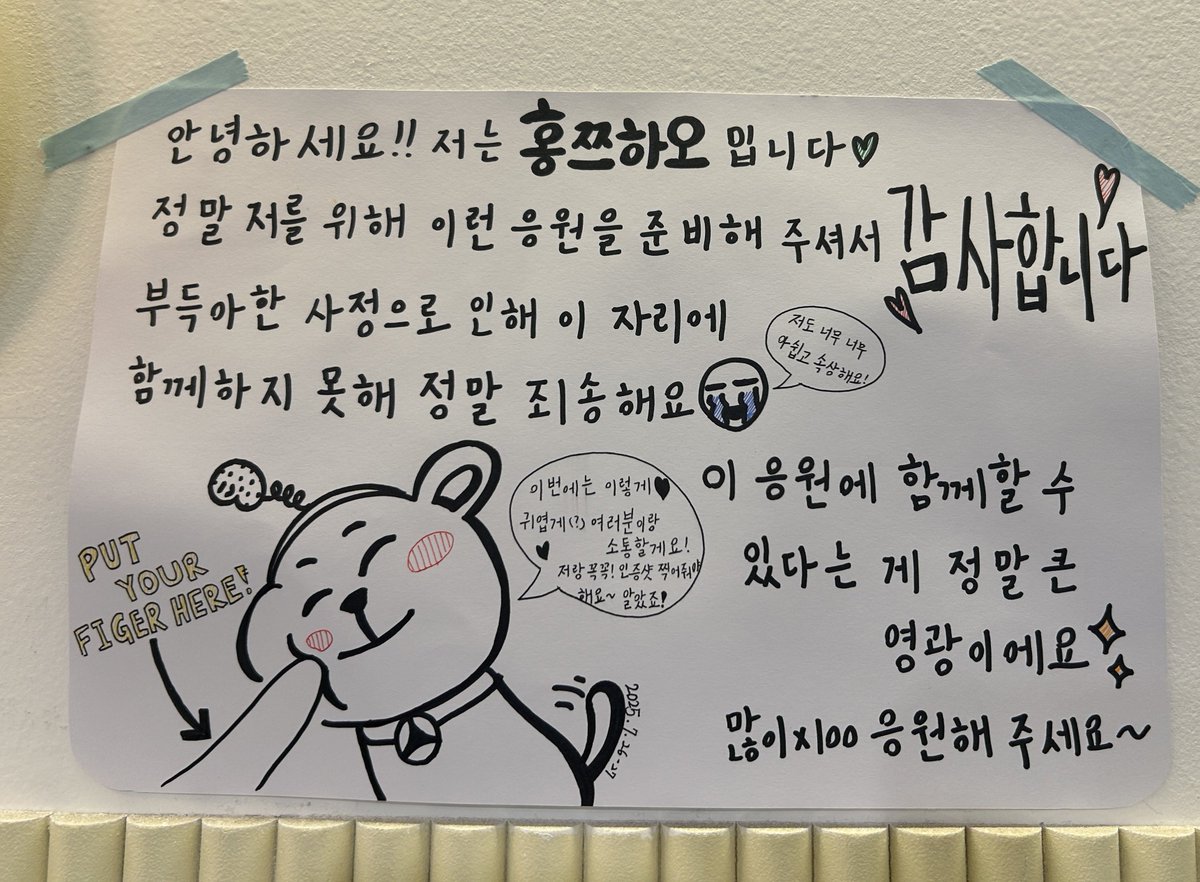 안녕하세요!! 저는 홍쯔하오 입니다♡
정말 저를 위해 이런 응원을 준비해 주셔서 감사합니다
부득아한 사정으로 인해 이 자리에
함께하지 못해 정말 죄송해요
저도 너무 너무
아쉽고 속상해요!
이번에는 이렇게♥
귀엽게(?) 여러분이랑
소통할게요!
저랑 꼭꼭! 인증샷 찍어줘야
해요~ 알았죠!
PUT
YOUR
FIGER HERE!
이 응원에 함께할 수
있다는 게 정말 큰
영광이에요
많이x100 응원해 주세요~
2025.7.26-27